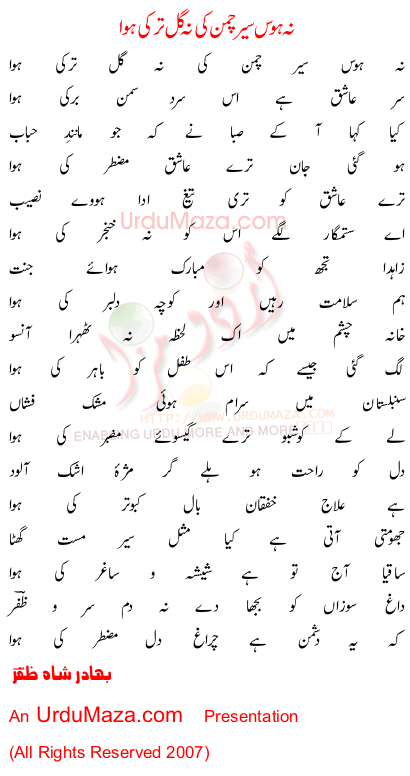 نہ ہوس سیر چمن کی نہ گل تر کی ہوا
نہ ہوس سیر چمن کی نہ گل تر کی ہوا
سر عاشق ہے اس سرد سمن برکی ہوا
کیا کہا آ کے صبا نے کہ جو مانندِ حباب
ہو گئی جان ترے عاشق مضطر کی ہوا
ترے عاشق کو تری تیغ ادا ہووے نصیب
UrduMaza.com
اے ستمگار لگے اس کو نہ خنجر کی ہوا
زاہدا تجھ کو مبارک ہوائے جنت
ہم سلامت رہیں اور کوچہ دلبر کی ہوا
اردو مزا
خانہ چشم میں اک لحظہ نہ ٹھہرا آنسو
لگ گئی جیسے کہ اس طفل کو باہر کی ہوا
سنبلستان میں سرام ہوئی مشک فشاں
HTTP://WWW.URDUMAZA.COM
ENABLING URDU MORE AND MORE
لے کے خوشبو ترے گیسوئے معنبر کی ہوا
دل کو راحت ہو ہلے گر مژۂ اشک آلود
ہے علاج خفقان بال کبوتر کی ہوا
جھومتی آتی ہے کیا مثل سیر مست گھٹا
ساقیا آج تو ہے شیشہ و ساغر کی ہوا
داغ سوزاں کو بجھا دے نہ دم سر و ظفر
کہ یہ دشمن ہے چراغ دل مضطر کی ہوا
بہادر شاہ ظفر
An UrduMaza.com Presentation
(All Rights Reserved 2007)